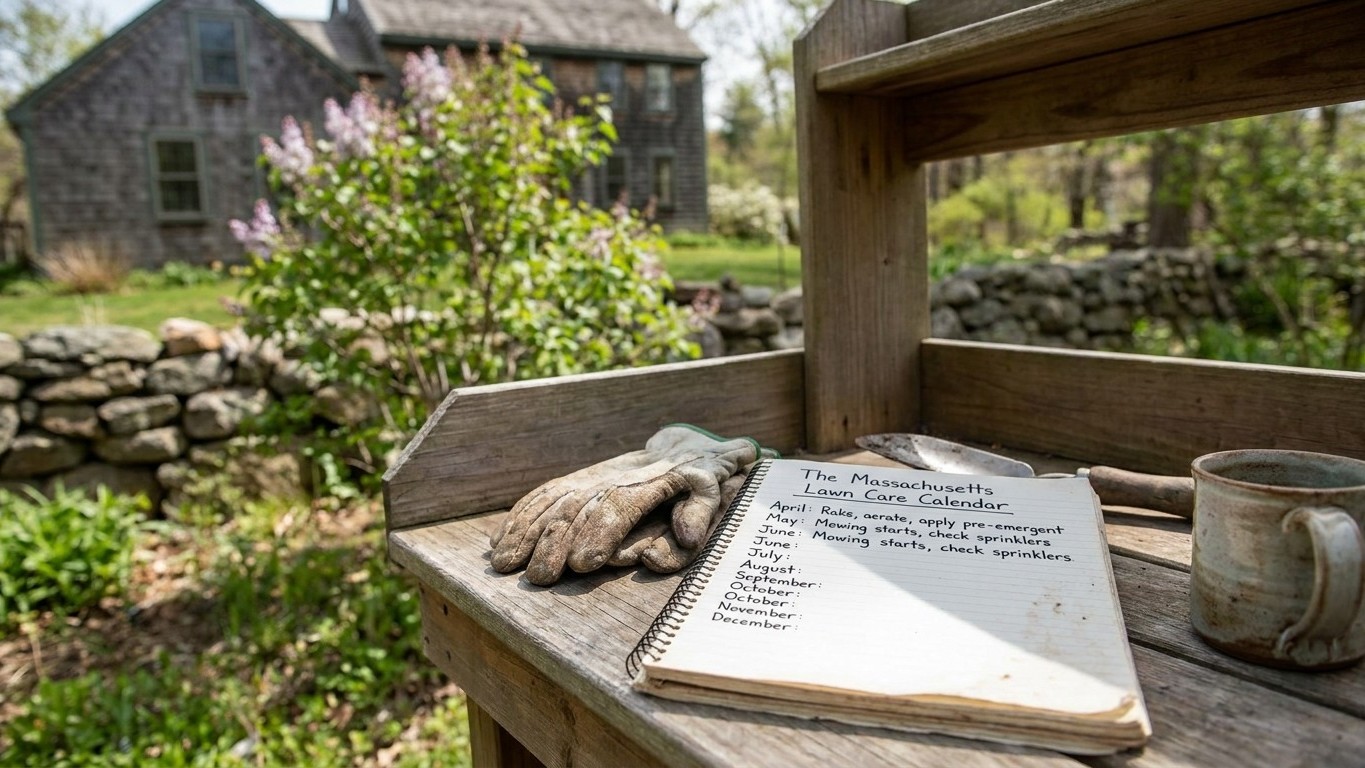 The Massachusetts
Lawn Care Calendar
April: Raks, aerate, apply pre-emergent
May: Mowing starts, check sprinklers
June: Mowing starts, check sprinklers.
June:
July:
August:
September:
October:
October:
November:
December: